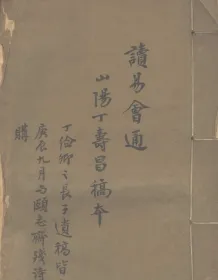 讀易會通
山陽丁壽昌稿本
丁儉卿之長子遺稿皆
庚辰九月頤志齋
購